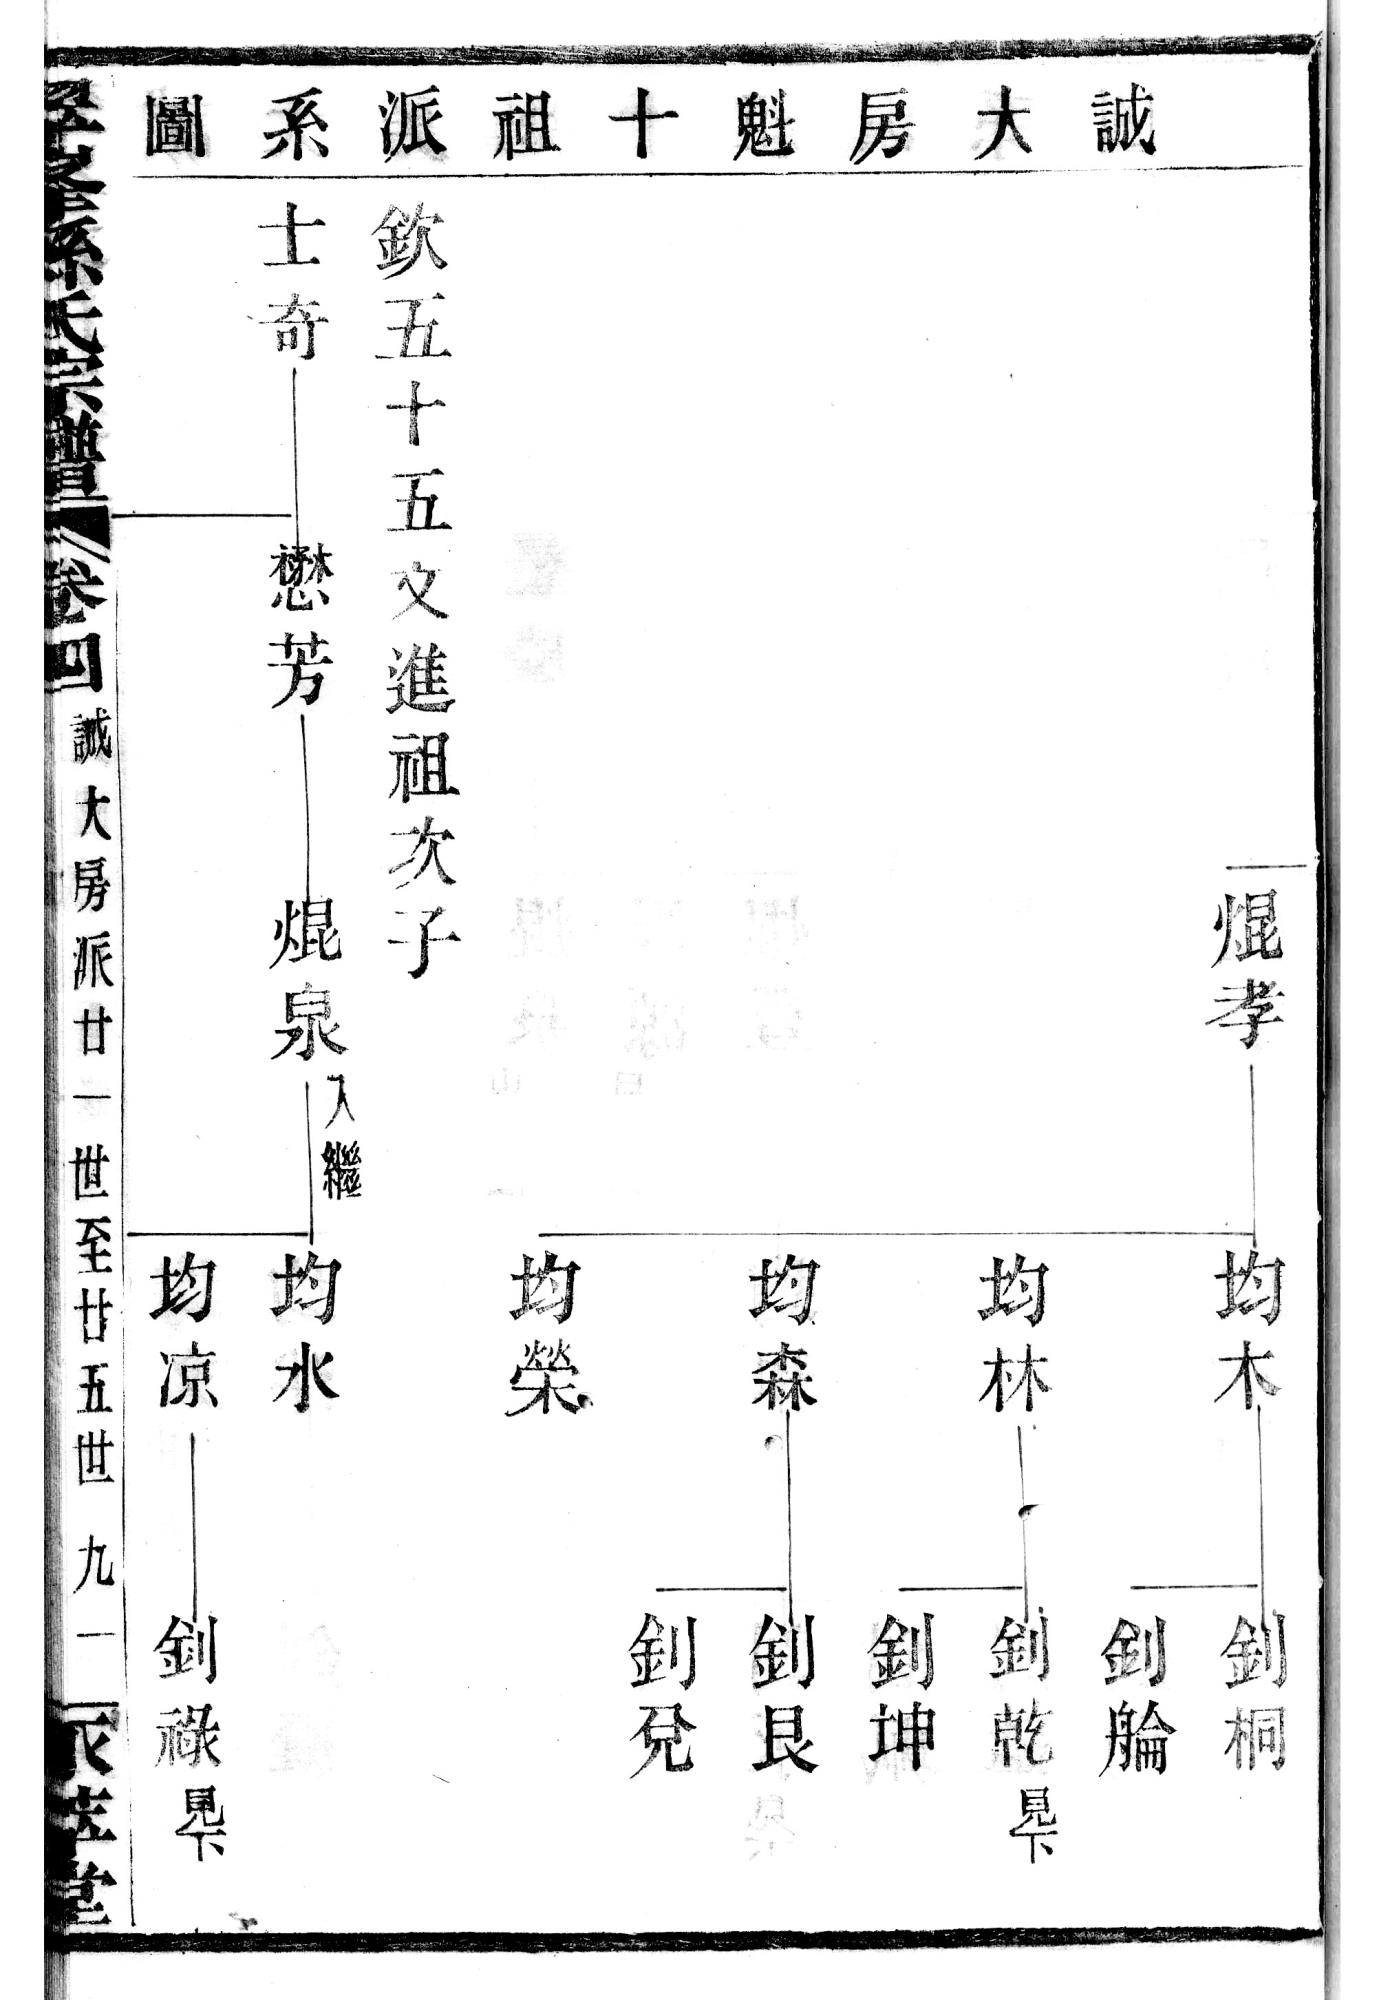 誠大房魁十祖派系圖
焜孝
均木
釗桐
釗艑
均林
釗乾 見下
釗坤
均森
釗艮
釗兌
均榮
欽五十五文進祖次子
士奇
懋芳
焜泉 入繼
均水
均凉
釗祿 見下
孫氏宗譜 卷四 誠大房派廿一世至廿五世 九一 堂